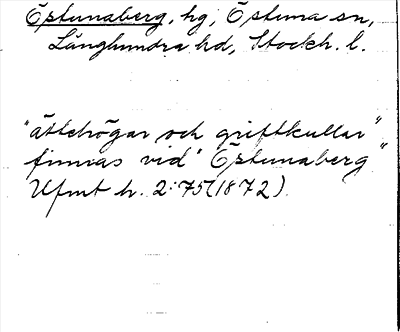 Östunaberg, hg, Östuna sn,
Långhundra hd, Stockh. l.
"ättehögar och griftkullar"
finnas vid "Östunaberg"
Ufmt h. 2:75 (1872).